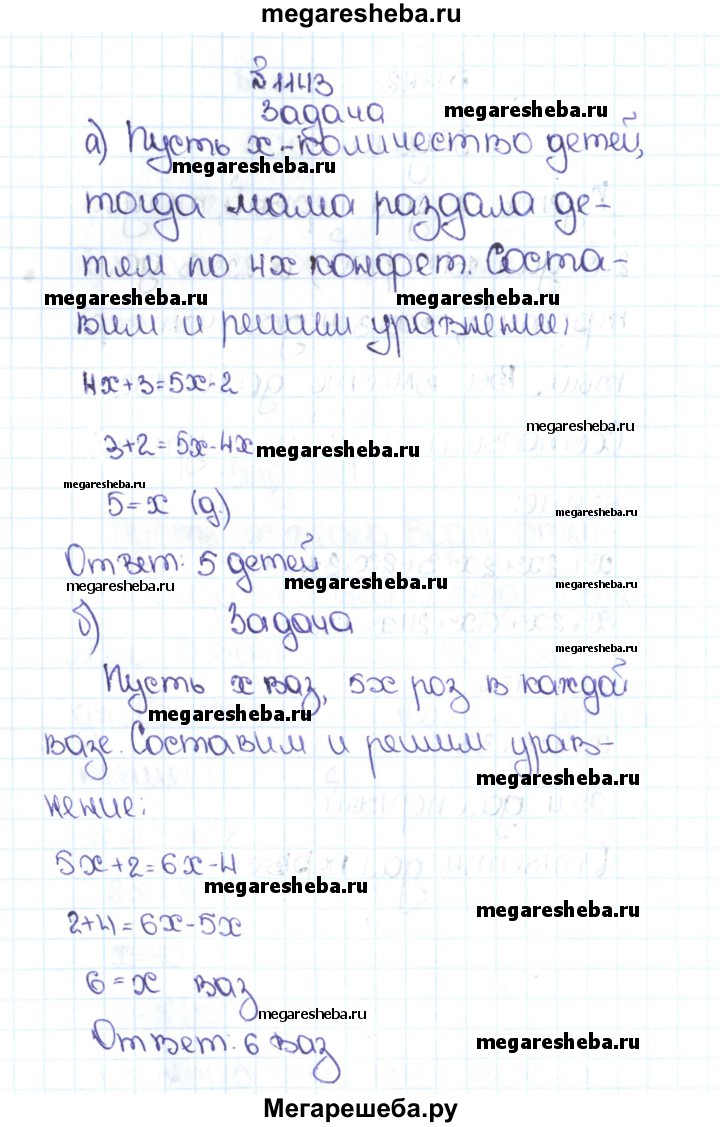 megaresheba.ru
№1143
Задача
megaresheba.ru
а) Пусть x-количество детей,
megaresheba.ru
тогда мама раздала де-
тям по 4x конфет. Соста-
megaresheba.ru megaresheba.ru
вим и решим уравнение:
4x+3=5x-2
megaresheba.ru
3+2=5x-4x
megaresheba.ru
megaresheba.ru
5=x (д.)
megaresheba.ru
Ответ: 5 детей
megaresheba.ru megaresheba.ru megaresheba.ru
б) Задача
megaresheba.ru
Пусть x ваз, 5x роз в каждой
megaresheba.ru
вазе. Составим и решим урав-
megaresheba.ru
нение:
5x+2=6x-4
megaresheba.ru
megaresheba.ru
2+4=6x-5x
6=x ваз
megaresheba.ru
Ответ: 6 ваз
megaresheba.ru
Мегарешеба.ру